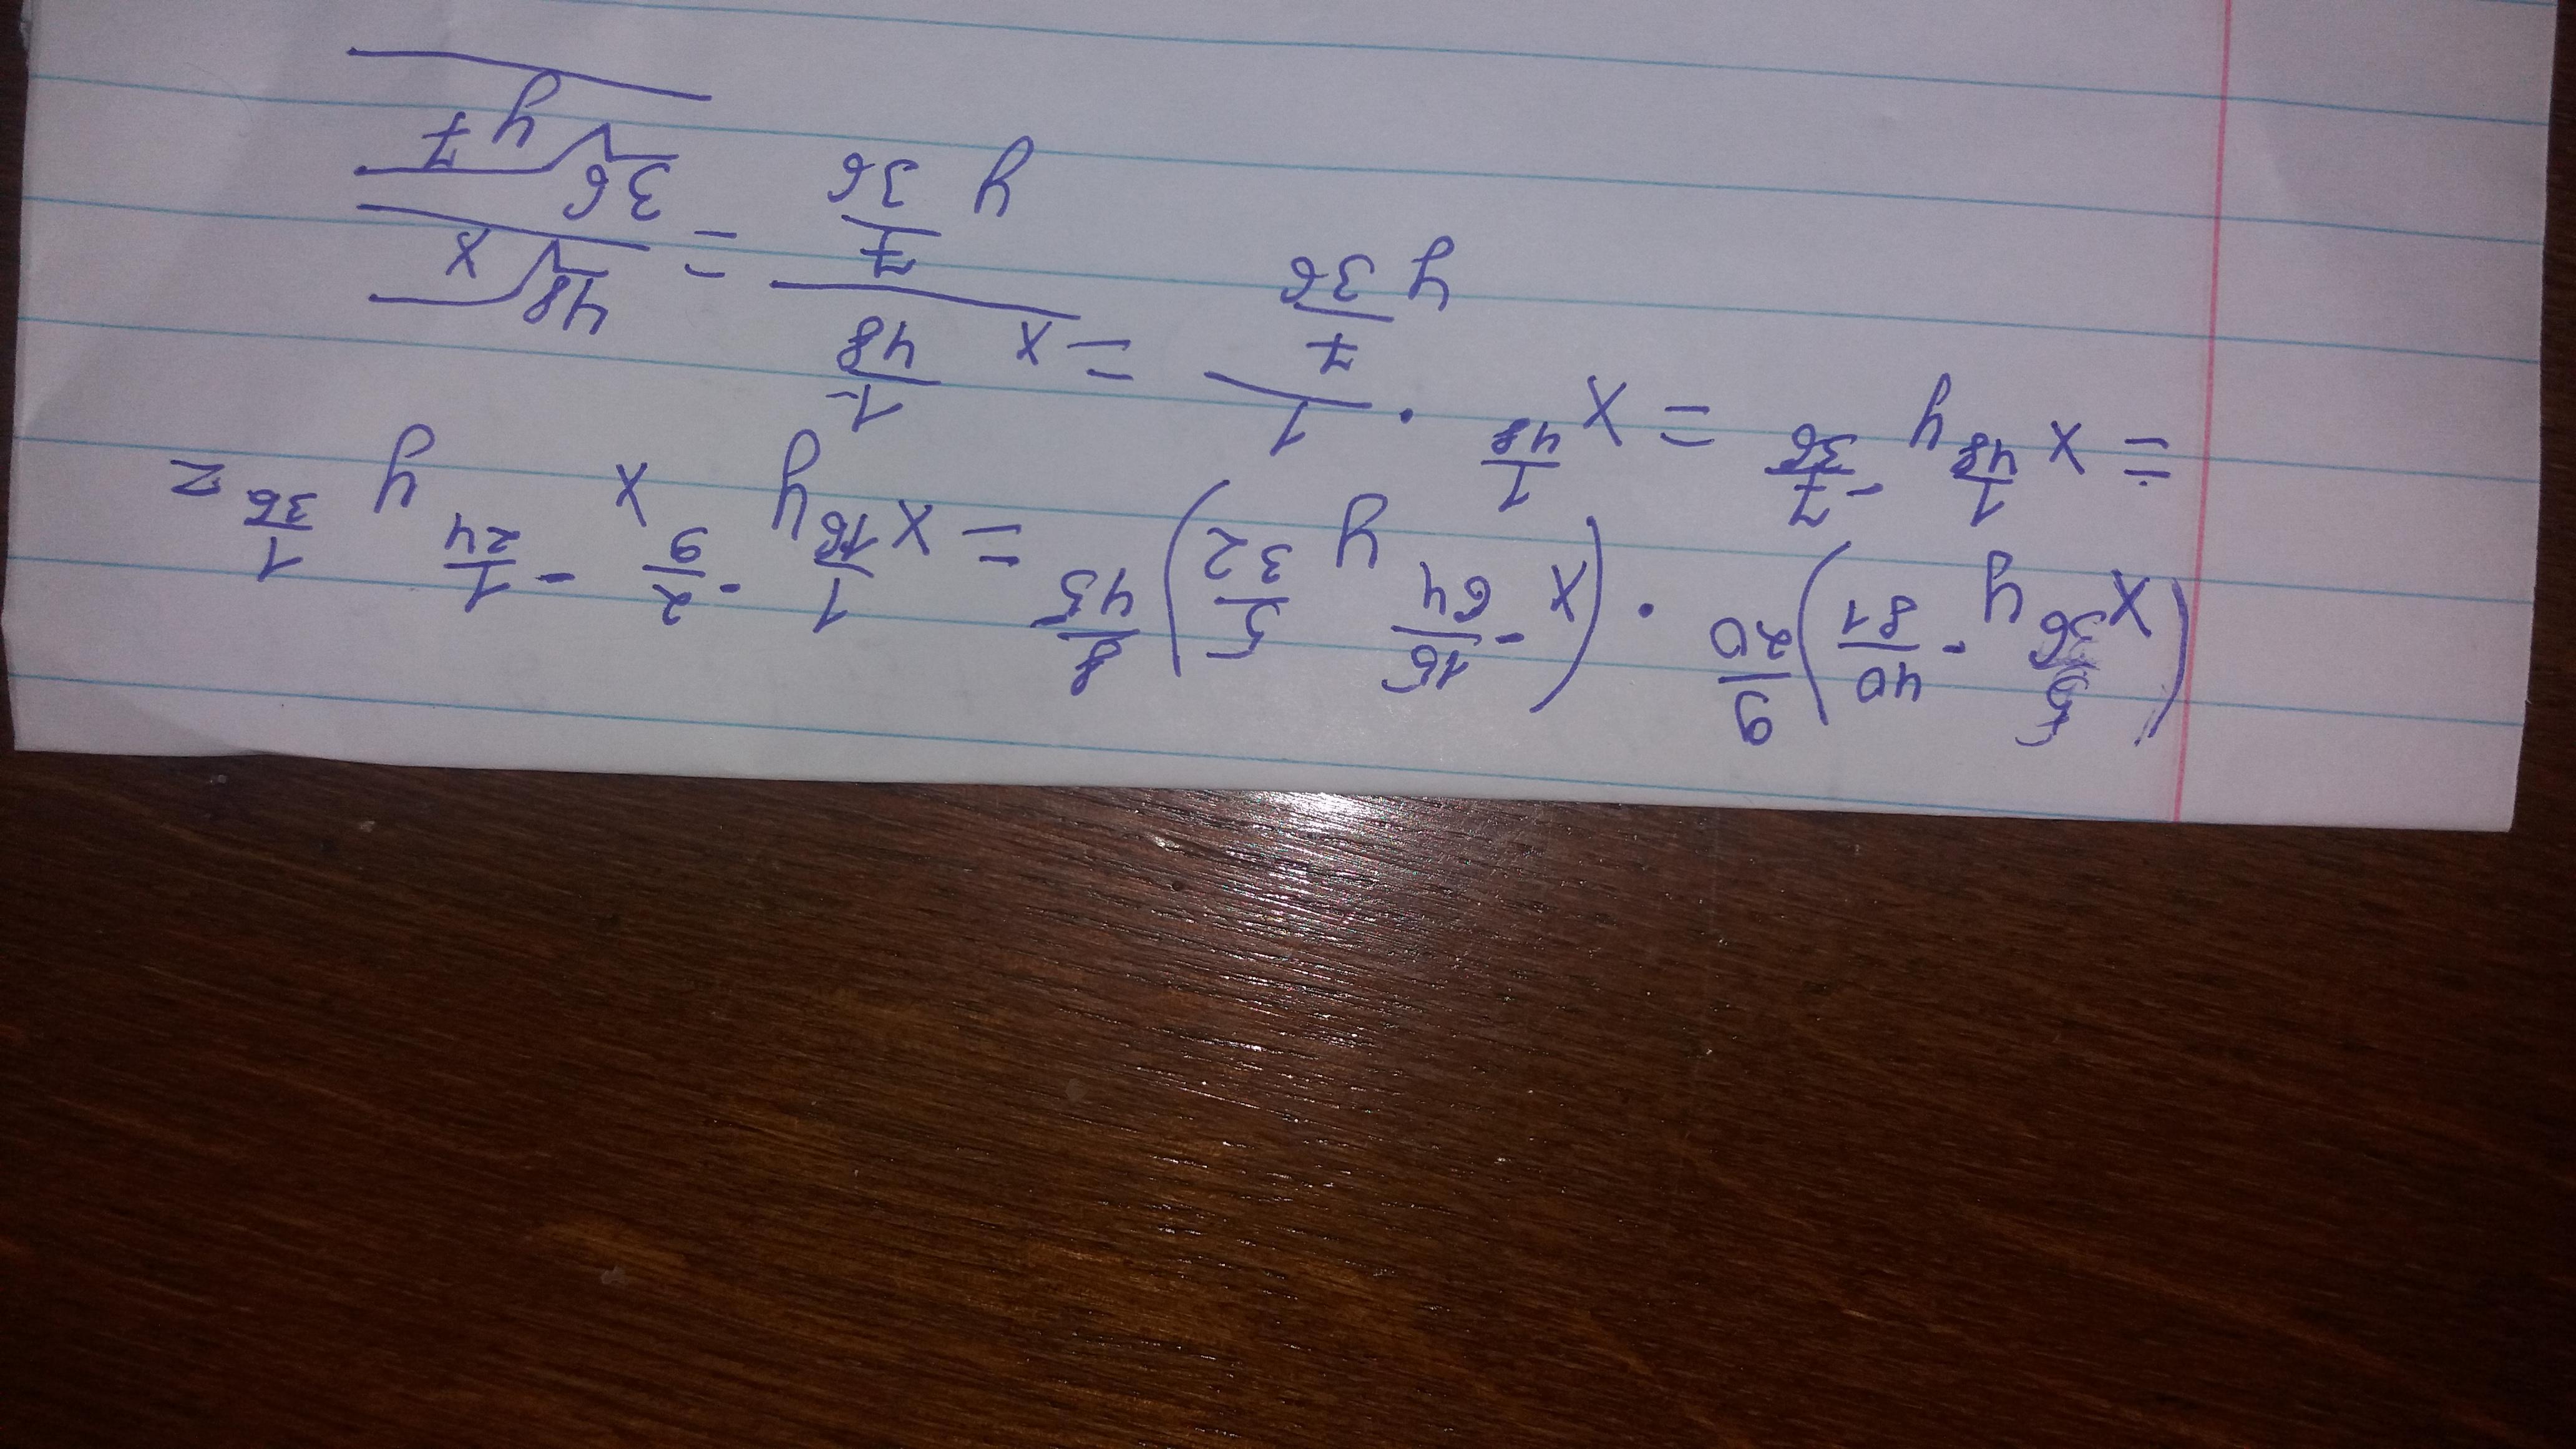 (x^{5/36} y^{-40/81})^{9/20} · (x^{-15/64} y^{5/32})^{8/45} = x^{1/16} y^{-2/9} x^{-1/24} y^{1/36} =
= x^{1/48} y^{-7/36} = x^{1/48} · \frac{1}{y^{7/36}} = \frac{x^{1/48}}{y^{7/36}} = \frac{\sqrt[48]{x}}{\sqrt[36]{y^7}}